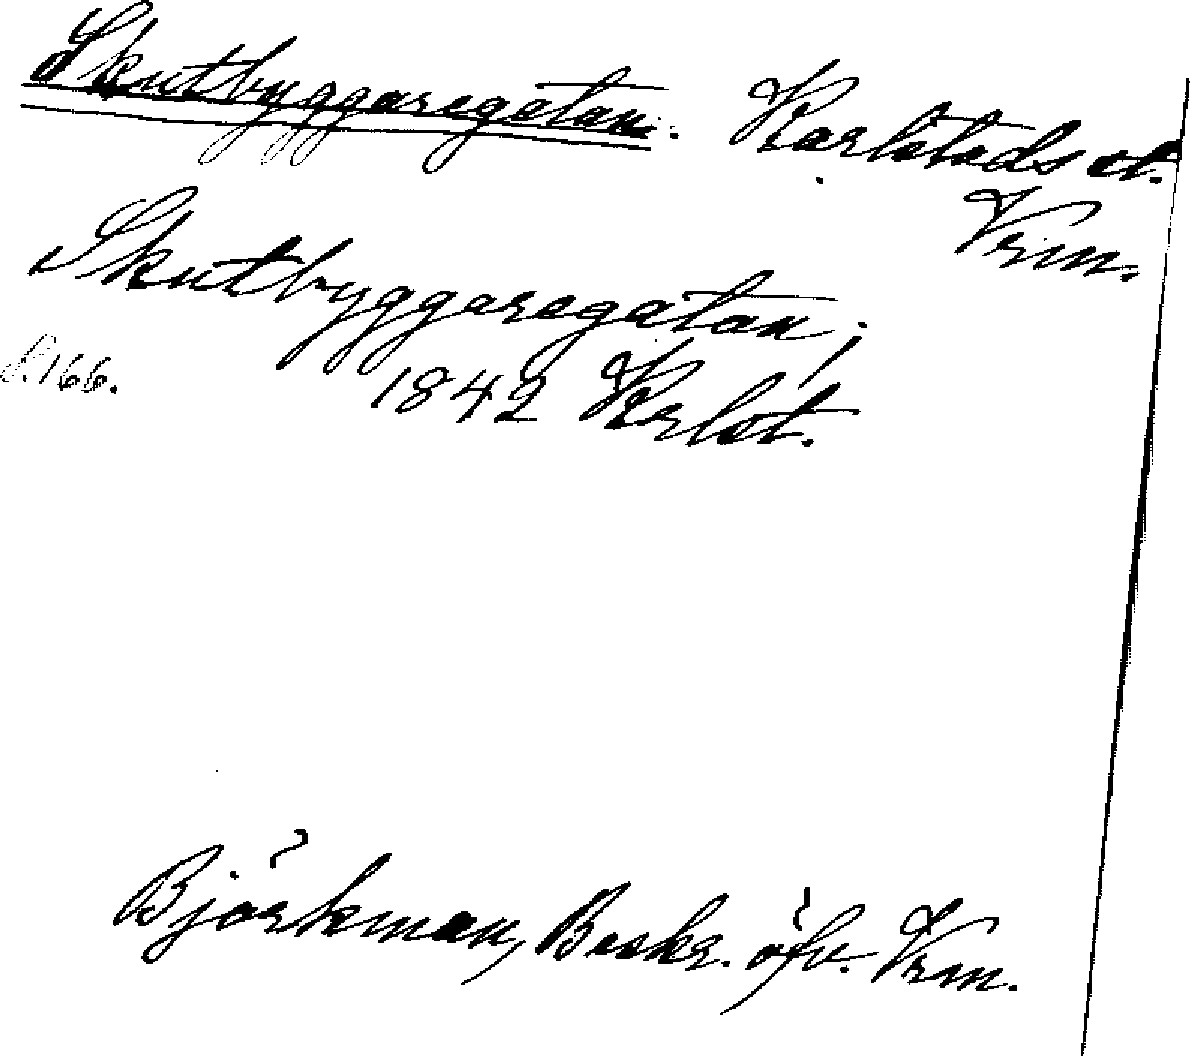 Skutbyggaregatan. Karlstads st.
Vrm.
Skutbyggaregatan,
S. 166. 1842 Krlst.
Björkman, Beskr. öfv. Vrm.